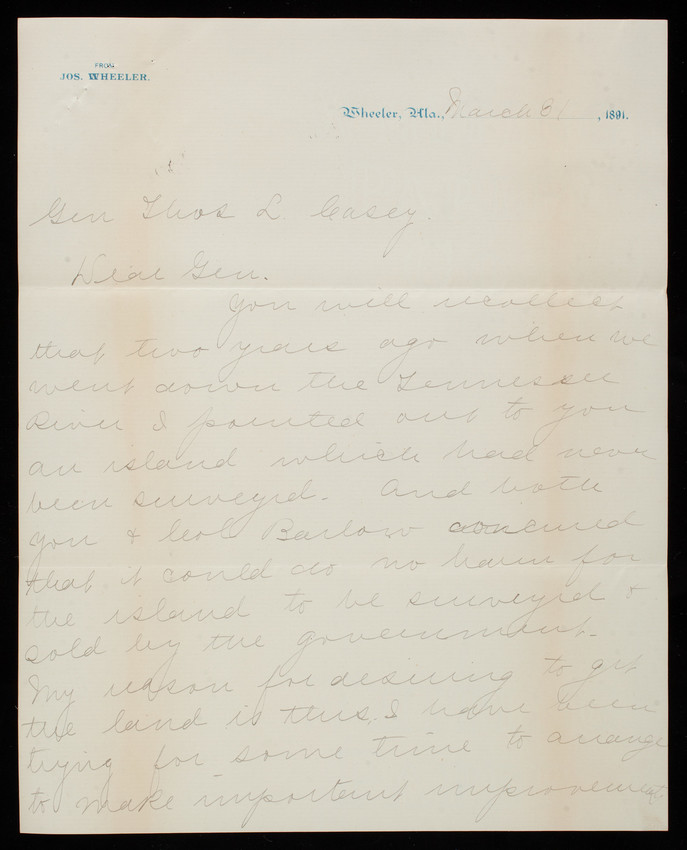 FROM
JOS. WHEELER.
Wheeler, Ala., March 31, 1891.
Gen Thos L. Casey.
Dear Gen.
You will recollect
that two years ago when we
went down the Tennessee
River I pointed out to you
an island which had never
been surveyed. And both
you & Col Barlow
that it could do no harm for
the island to be surveyed &
sold by the government.
My reason for desiring to get
the land is thus. I have been
trying for some time to arrange
to make important improvements